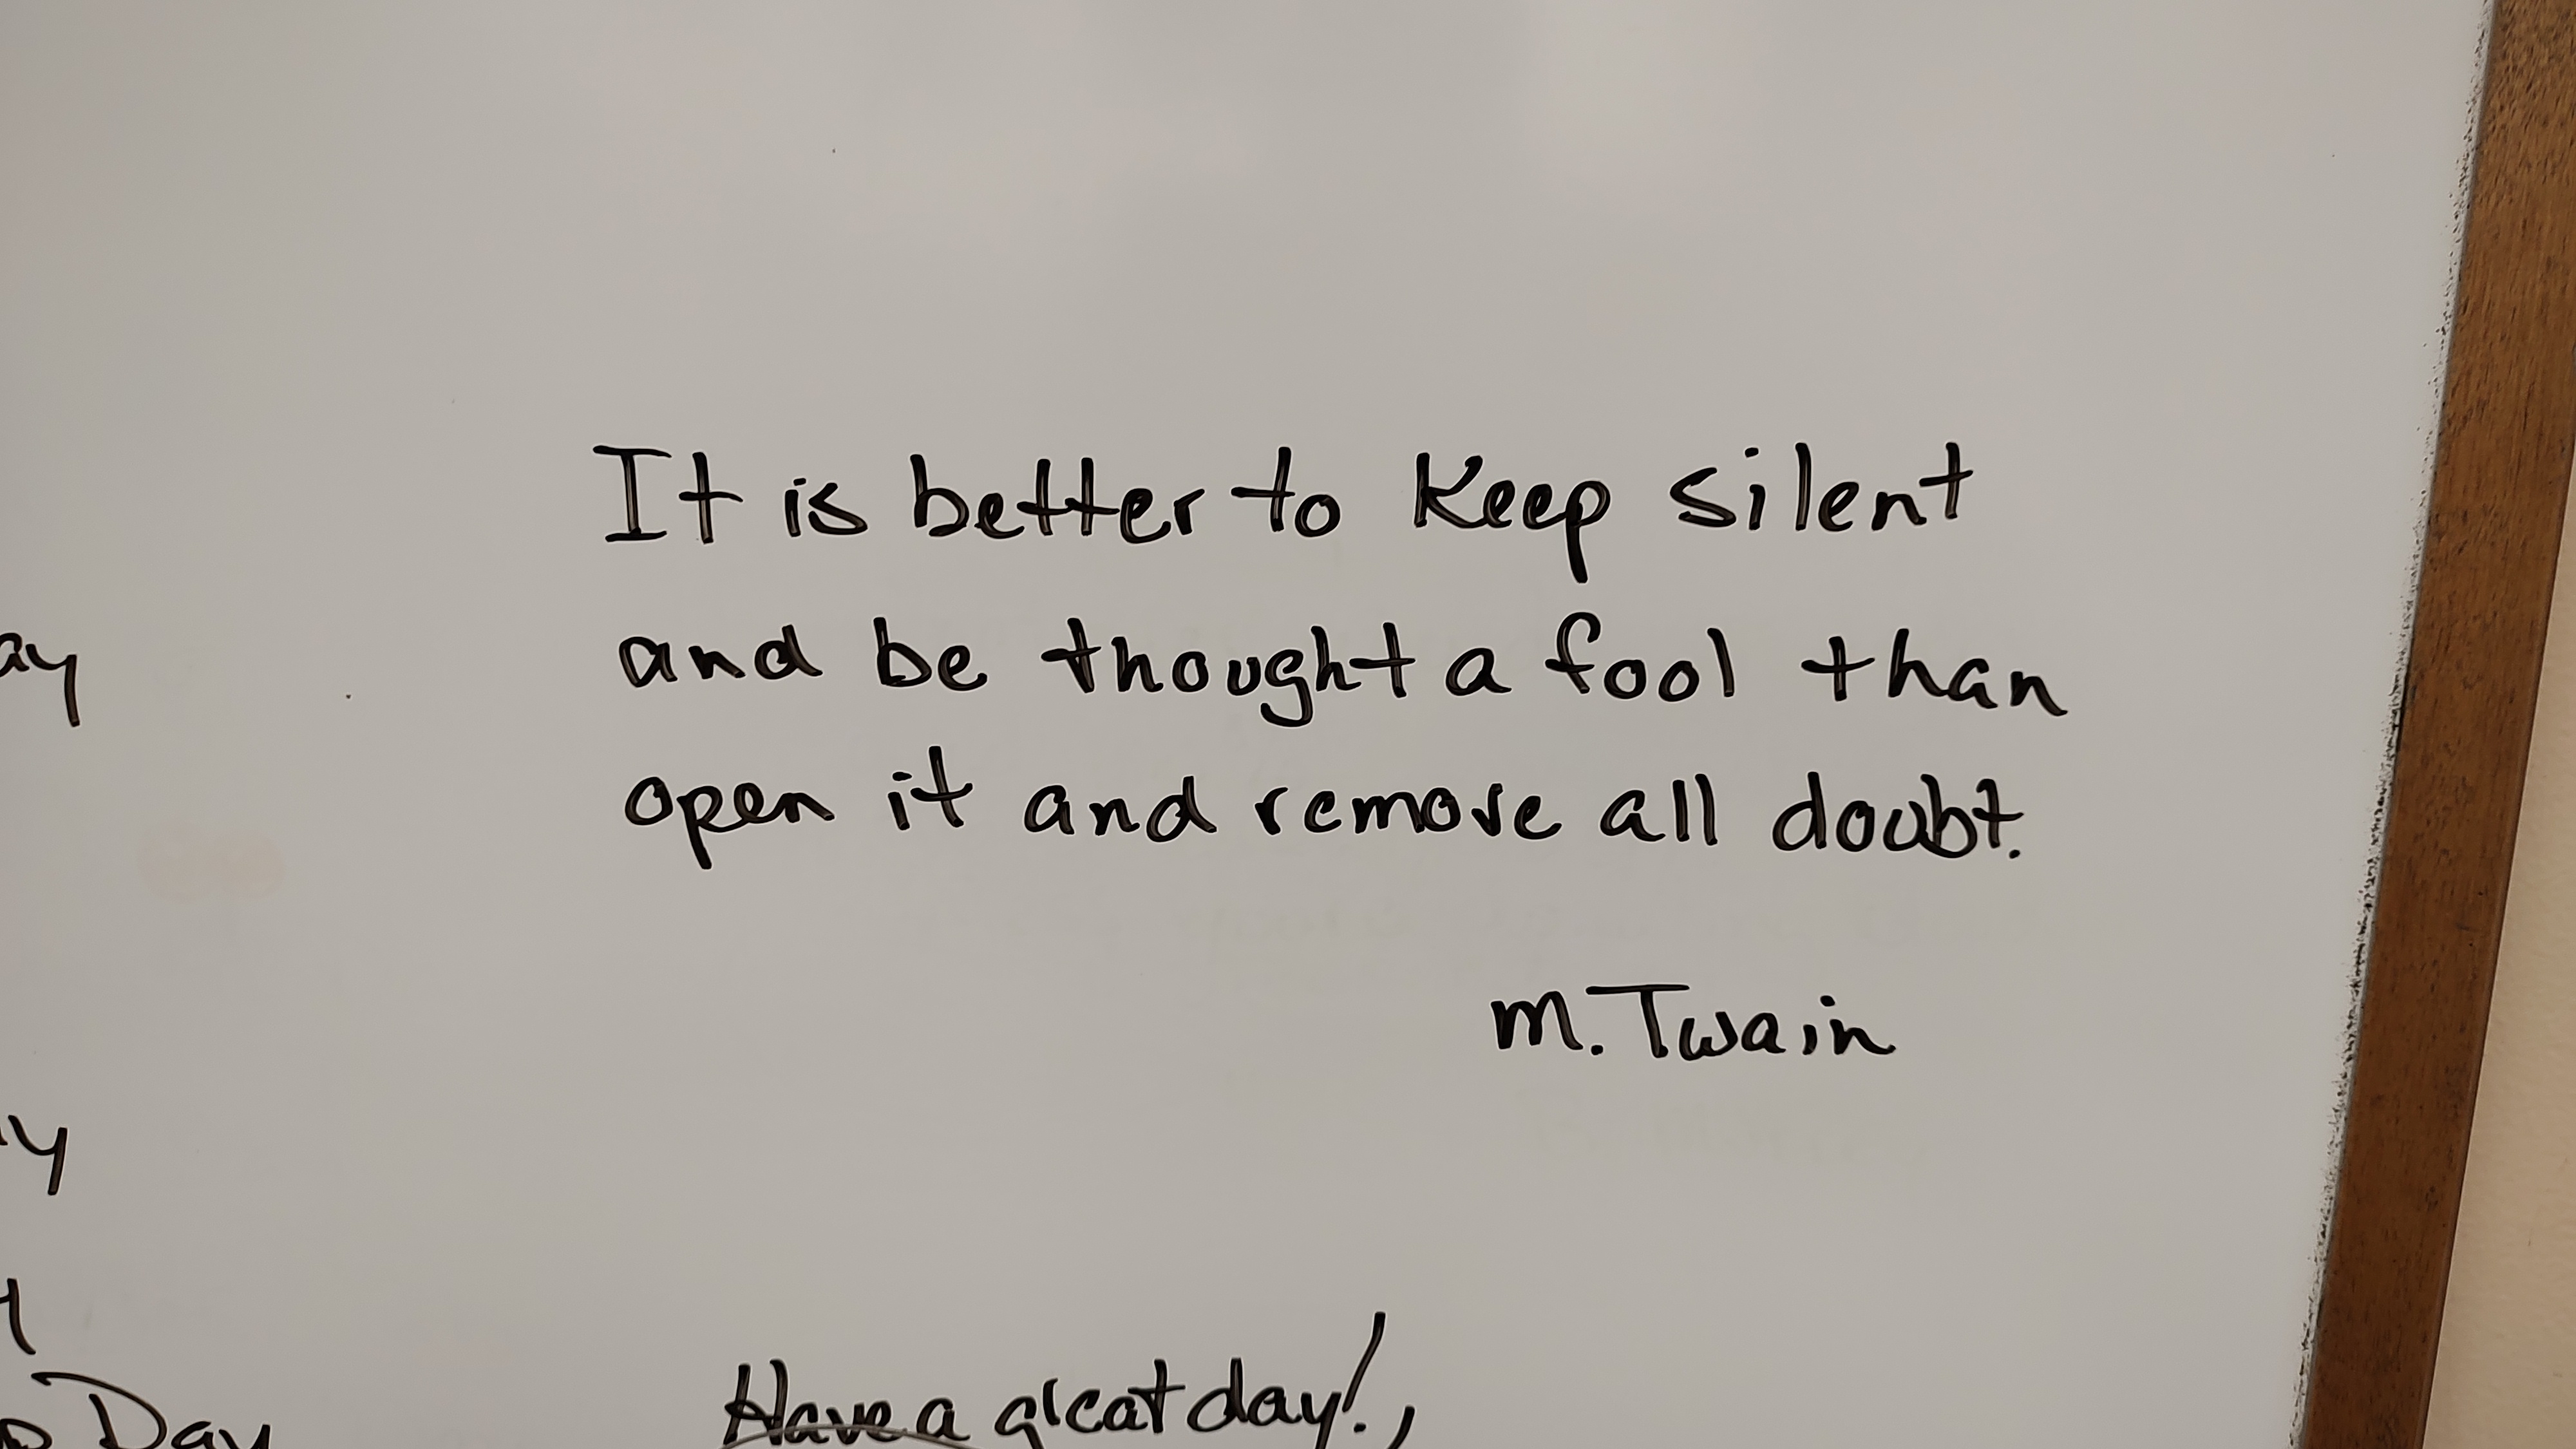 It is better to Keep silent
and be thought a fool than
open it and remove all doubt.
M. Twain
Have a great day!
Day